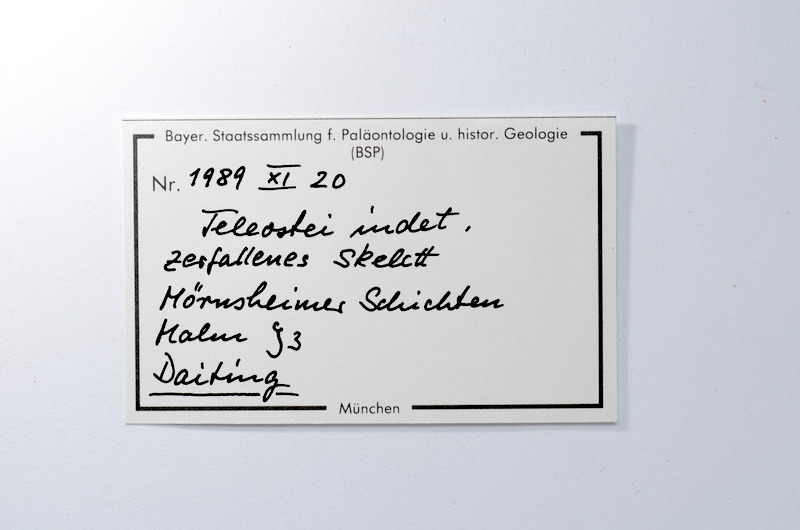 Bayer. Staatssammlung f. Paläontologie u. histor. Geologie
(BSP)
Nr. 1989 XI 20
Teleostei indet.
zerfallenes Skelett
Mörnsheimer Schichten
Malm ζ3
Daiting
München